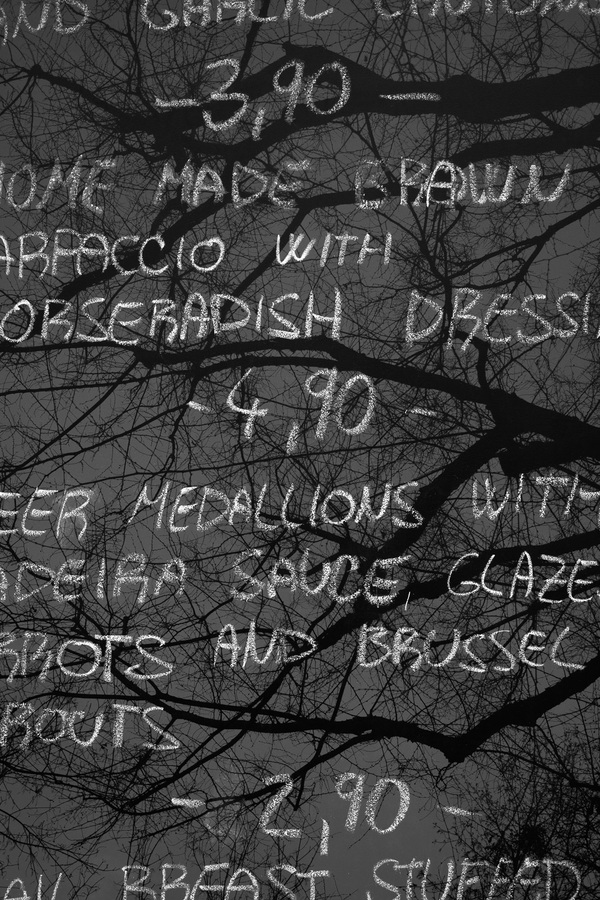 AND GARLIC
-3,90-
HOME MADE BRAWN
ARPACCIO WITH
ORSERADISH DRESSI
-4,90-
EER MEDALLIONS WITH
ADEIRA SAUCE, GLAZE
RROTS AND BRUSSEL
ROUTS
-2,90-
BREAST STUFFED